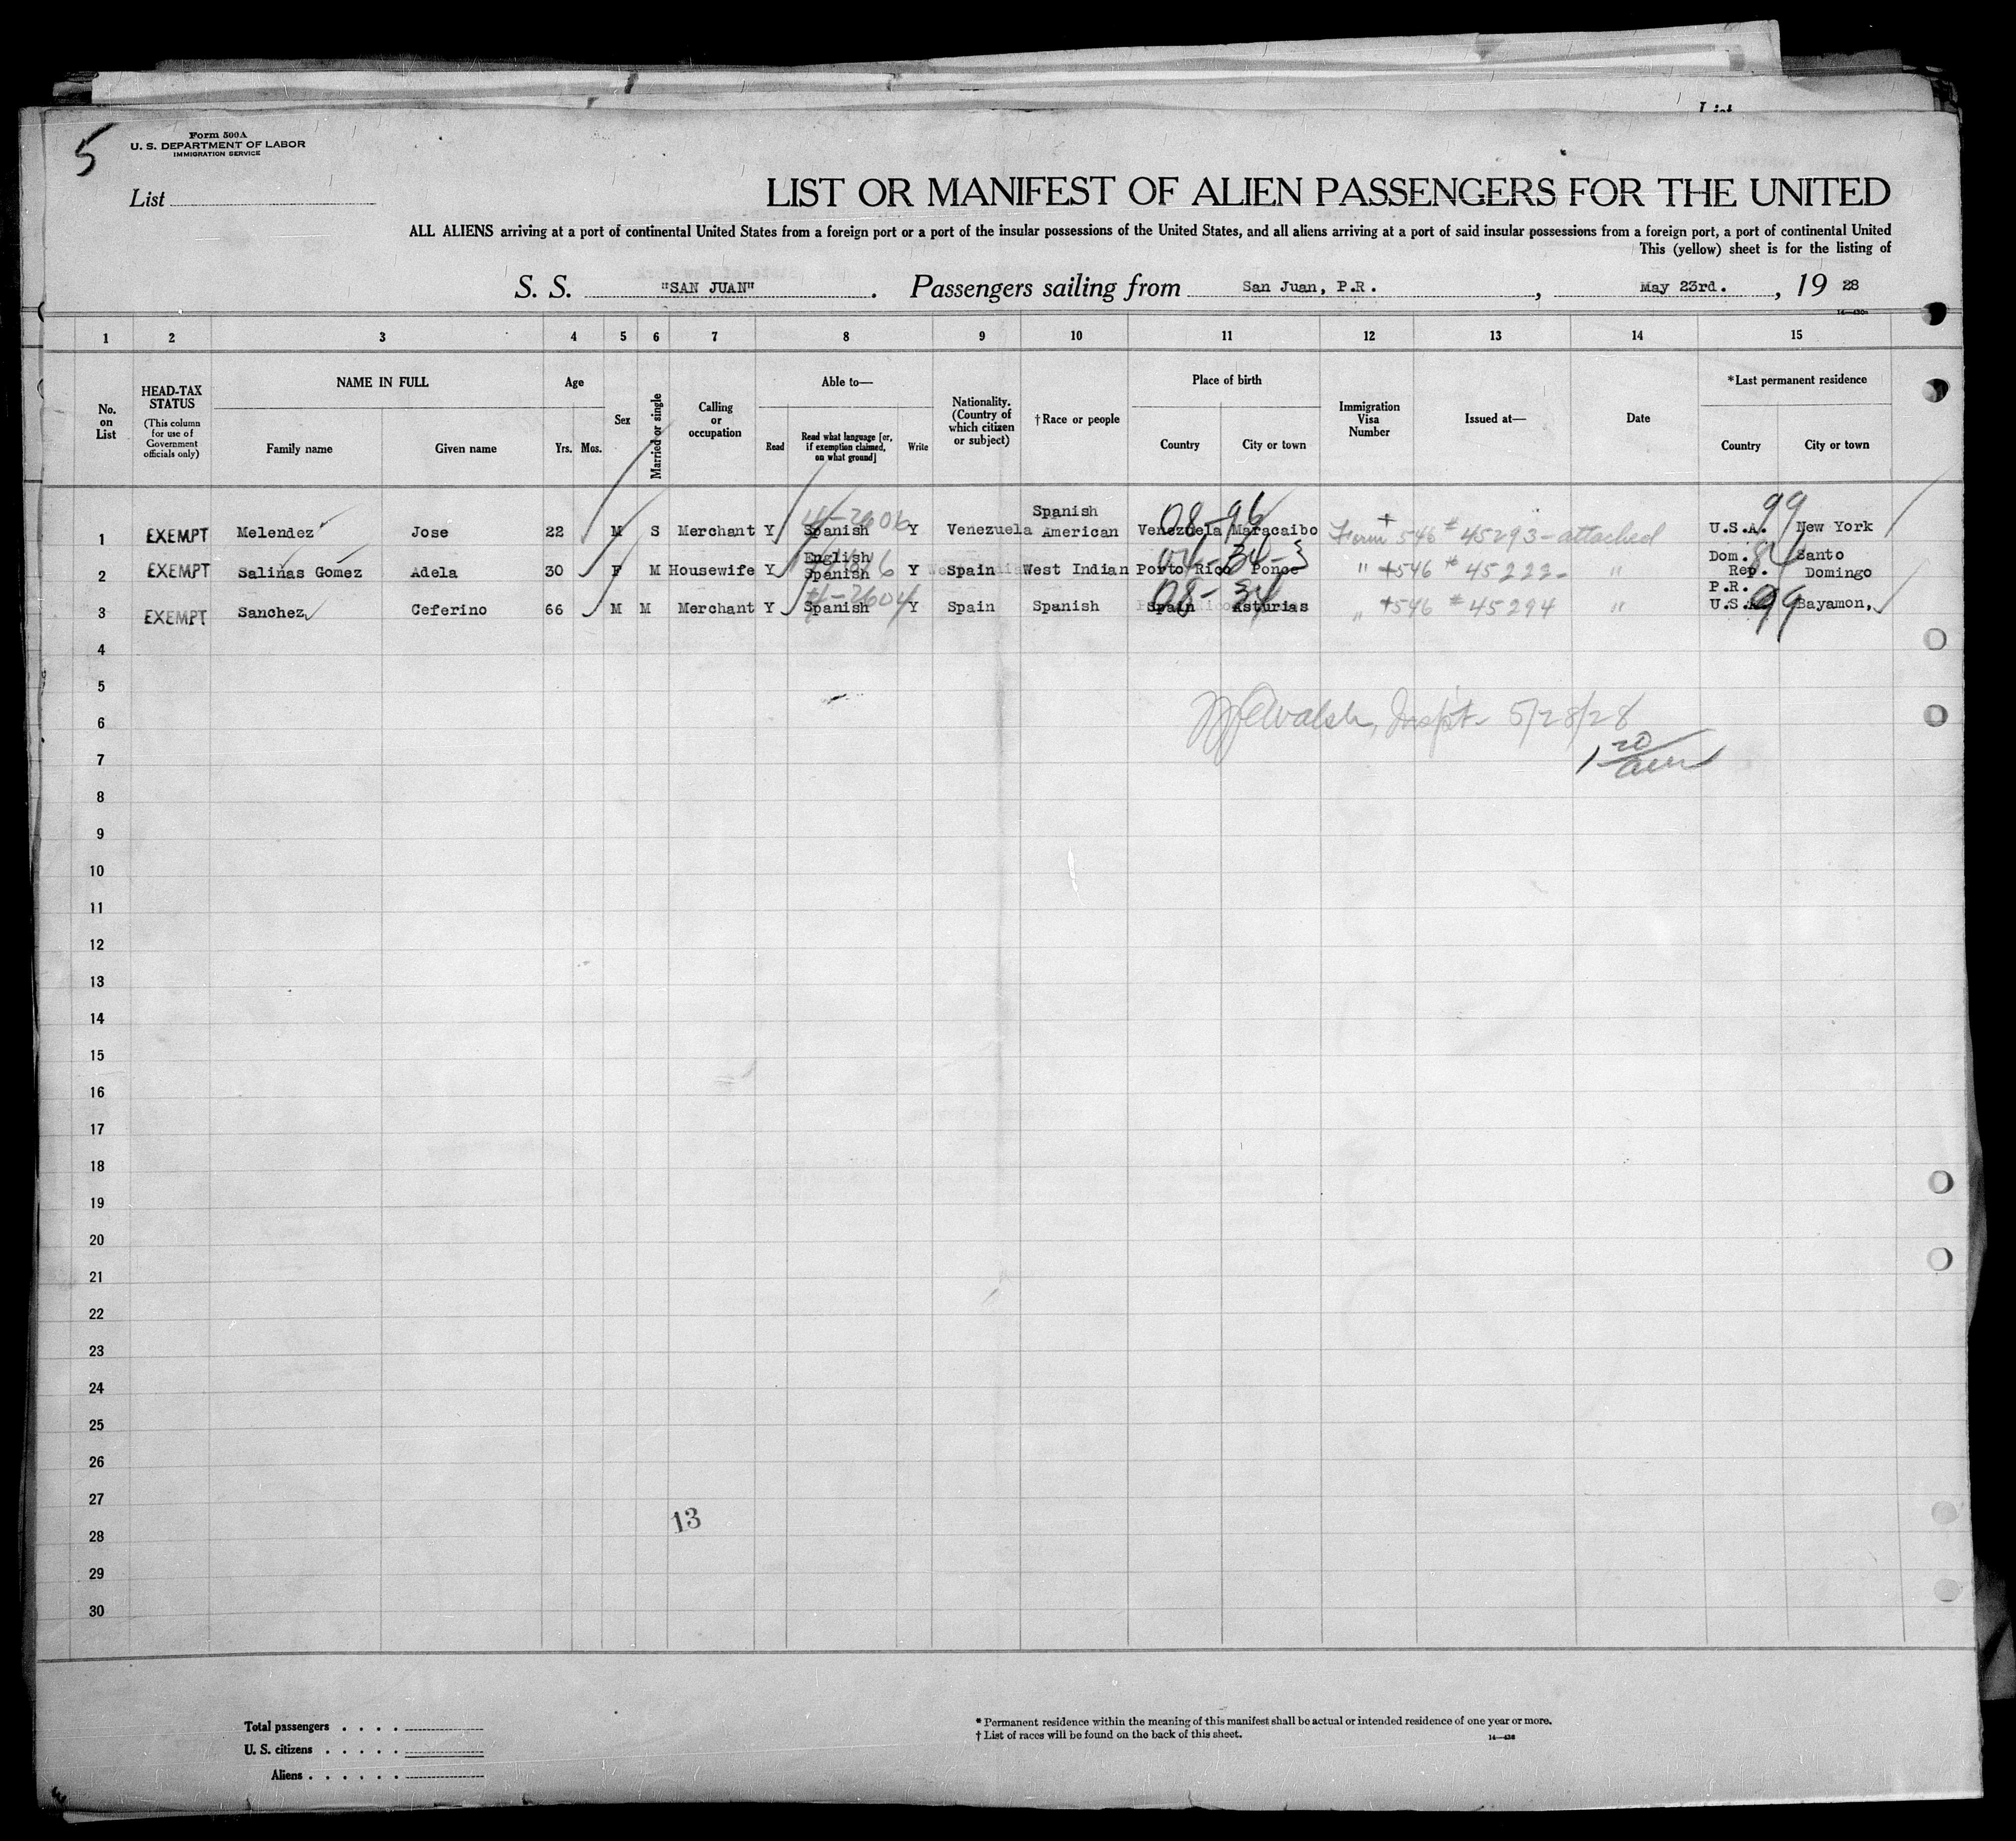 5
Form 500A
U. S. DEPARTMENT OF LABOR
IMMIGRATION SERVICE
List
LIST OR MANIFEST OF ALIEN PASSENGERS FOR THE UNITED
ALL ALIENS arriving at a port of continental United States from a foreign port or a port of the insular possessions of the United States, and all aliens arriving at a port of said insular possessions from a foreign port, a port of continental United
This (yellow) sheet is for the listing of
S. S. "SAN JUAN". Passengers sailing from San Juan, P.R. , May 23rd. , 19 28
1 2 3 4 5 6 7 8 9 10 11 12 13 14 15
No. on List
HEAD-TAX STATUS
(This column for use of Government officials only)
NAME IN FULL
Family name Given name
Age
Yrs. Mos.
Sex
Married or single
Calling or occupation
Able to—
Read
Read what language [or, if exemption claimed, on what ground]
Write
Nationality. (Country of which citizen or subject)
† Race or people
Place of birth
Country City or town
Immigration Visa Number
Issued at—
Date
*Last permanent residence
Country City or town
1 EXEMPT Melendez Jose 22 M S Merchant Y Spanish Y Venezuela Spanish American Venezuela Maracaibo 08-96 Form 546 # 45293 - attached U.S.A. 99 New York
2 EXEMPT Salinas Gomez Adela 30 F M Housewife Y English Spanish Y Spain West Indian Porto Rico Ponce " 546 # 45222 - " Dom. Rep. 84 Santo Domingo
3 EXEMPT Sanchez Ceferino 66 M M Merchant Y Spanish Y Spain Spanish Spain Asturias 08-34 " 546 # 45294 " P.R. U.S.A. 99 Bayamon,
4
5
6
Walsh, Inspt. 5/28/28
7
1 20/am
8
9
10
11
12
13
14
15
16
17
18
19
20
21
22
23
24
25
26
27
13
28
29
30
Total passengers . . . .
U. S. citizens . . . . .
Aliens . . . . . .
* Permanent residence within the meaning of this manifest shall be actual or intended residence of one year or more.
† List of races will be found on the back of this sheet.